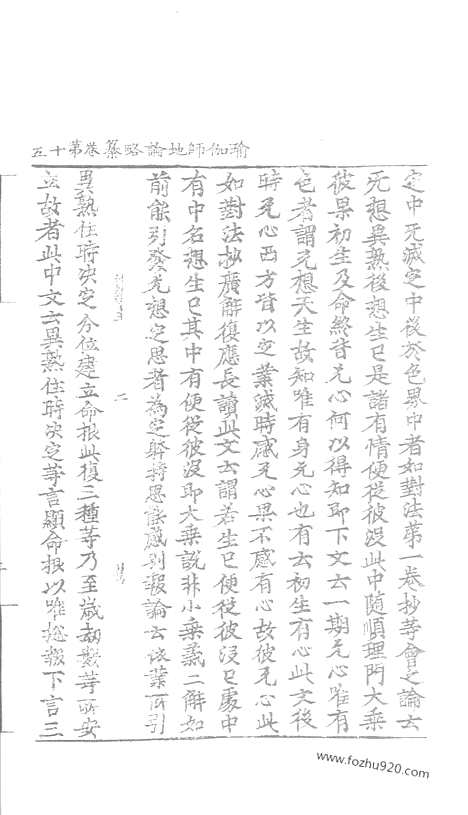 瑜伽師地論略纂卷第十五
定中无滅定中後於色界中者如對法第一卷抄等會之論云
无想異熟後想生已是諸有情便從彼沒此中隨順理門大乘
彼果初生及命終皆无心何以得知即下文云一期无心唯有
色者謂无想天生故知唯有身无心也有云初生有心此文後
時无心西方皆以定業滅時感无心果不感有心故彼无心此
如對法抄廣解復應長讀此文云謂若生已便從彼沒已處中
有中名想生已其中有便從彼沒即大乘說非小乘義二解如
前能引發无想定思者為定躰將思讁感別報論云依業所引
二
異熟住時決定分位建立命根此復三種等乃至歲劫數等所安
立故者此中文云異熟住時決定等言顯命根以唯揔報下言三
www.fozhu920.com